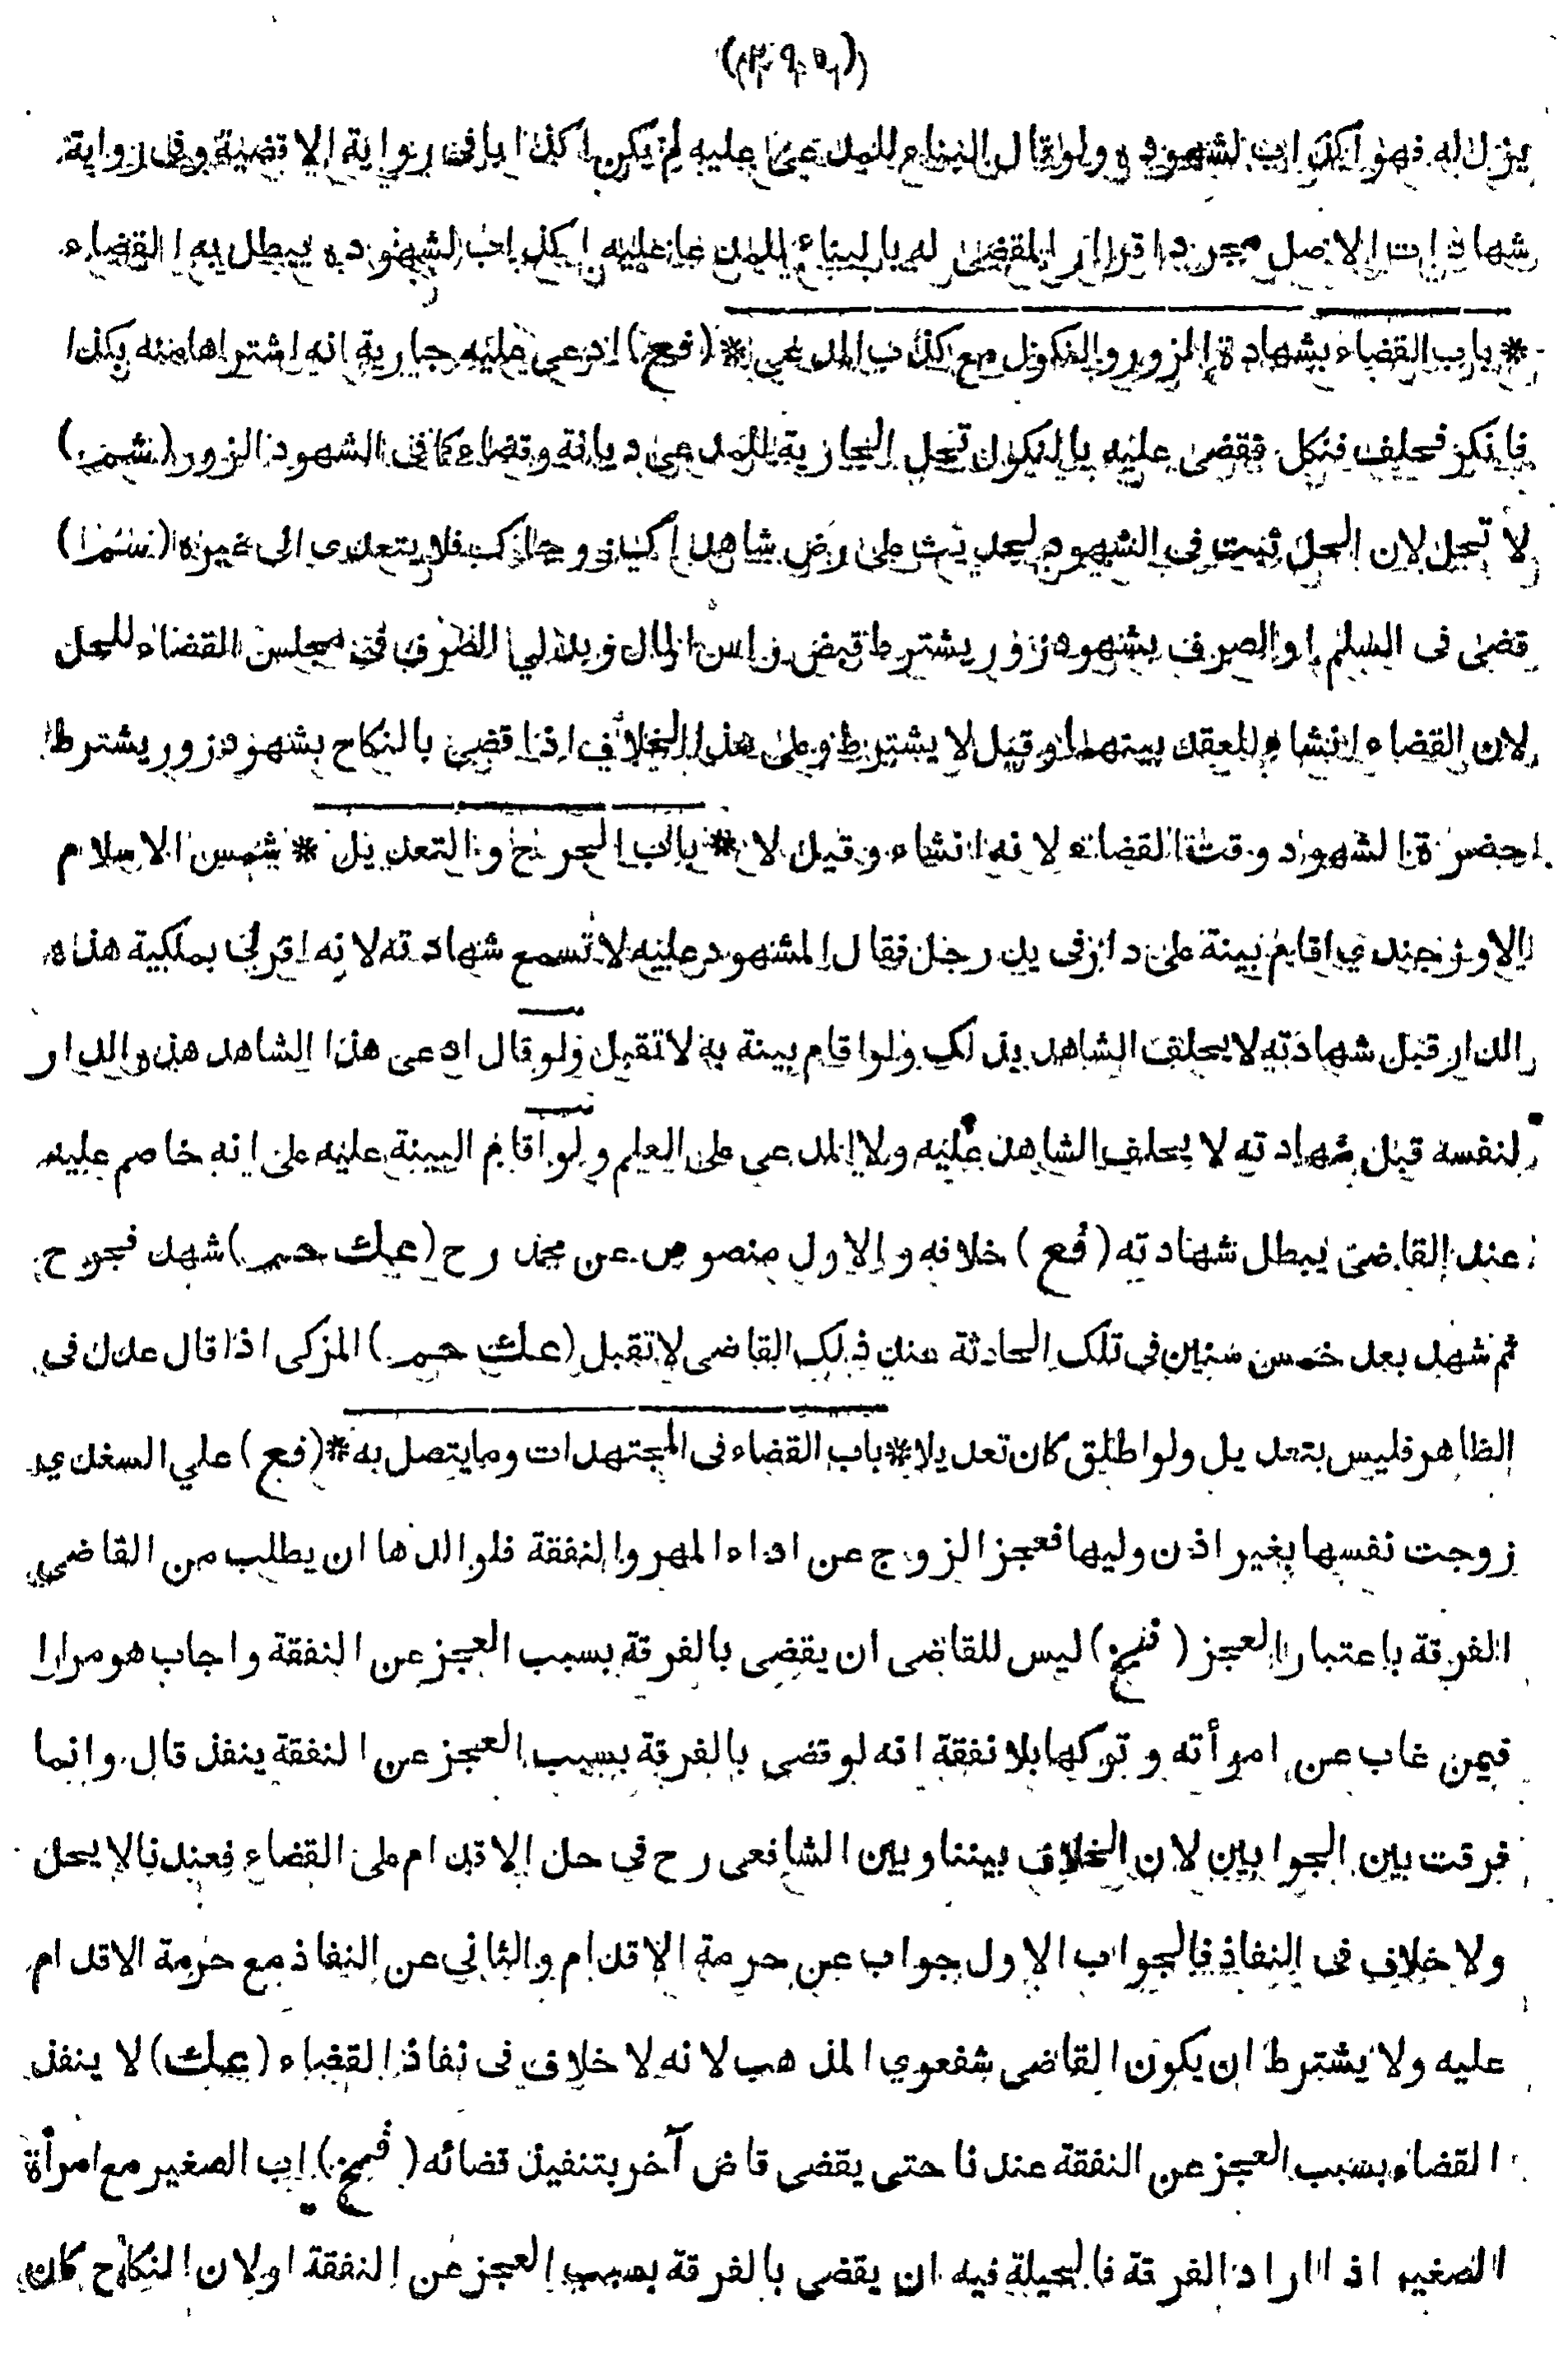 (٣٩٥)
يزل له فهو اكذاب لشهوده ولو قال البناء للمدعى عليه لم يكن اكذابا فى رواية الاقضية وفى رواية
شهادات الاصل مجرد اقرار المقضى له بالبناء للمدعا عليه اكذاب لشهوده يبطل به القضاء
* باب القضاء بشهادة الزور والنكول مع كذب المدعى * (فع) ادعى عليه جارية انه اشتراها منه بكذا
فانكر فحلف فنكل فقضى عليه بالنكول تحل الجارية للمدعى ديانة وقضاء كما فى الشهود الزور
لا تحل لان الحل ثبت فى الشهود لحديث على رض شاهداك زوجاك فلا يتعدى الى غيره
قضى فى السلم او الصرف بشهود زور يشترط قبض راس المال وبدلي الصرف فى مجلس القضاء للحل
لان القضاء انشاء للعقد بينهما وقيل لا يشترط وعلى هذا الخلاف اذا قضى بالنكاح بشهود زور يشترط
حضرة الشهود وقت القضاء لانه انشاء وقيل لا * باب الجرح والتعديل * شمس الاسلام
الاوزجندي اقام بينة على دار فى يد رجل فقال المشهود عليه لا تسمع شهادته لانه اقر لي بملكية هذه
الدار قبل شهادته لا يحلف الشاهد بذلك ولو اقام بينة به لا تقبل ولو قال ادعى هذا الشاهد هذه الدار
لنفسه قبل شهادته لا يحلف الشاهد عليه ولا المدعى على العلم ولو اقام البينة عليه على انه خاصم عليه
عند القاضى يبطل شهادته (فع) خلافه والاول منصوص عن محمد رح (عك حم) شهد فجرح
ثم شهد بعد خمس سنين فى تلك الحادثة عند ذلك القاضى لا تقبل (عك حم) المزكى اذا قال عدل فى
الظاهر فليس بتعديل ولو اطلق كان تعديلا * باب القضاء فى المجتهدات وما يتصل به * (فع) علي السغدي
زوجت نفسها بغير اذن وليها فعجز الزوج عن اداء المهر والنفقة فلوالدها ان يطلب من القاضى
الفرقة باعتبار العجز (فمخ) ليس للقاضى ان يقضى بالفرقة بسبب العجز عن النفقة واجاب هو مرارا
فيمن غاب عن امرأته وتركها بلا نفقة انه لو قضى بالفرقة بسبب العجز عن النفقة ينفذ قال وانما
فرقت بين الجوابين لان الخلاف بيننا وبين الشافعى رح في حل الاقدام على القضاء فعندنا لا يحل
ولا خلاف فى النفاذ فالجواب الاول جواب عن حرمة الاقدام والثاني عن النفاذ مع حرمة الاقدام
عليه ولا يشترط ان يكون القاضى شفعوي المذهب لانه لا خلاف فى نفاذ القضاء (عك) لا ينفذ
القضاء بسبب العجز عن النفقة عندنا حتى يقضى قاض آخر بتنفيذ قضائه (فمخ) اب الصغير مع امرأة
الصغير اذا اراد الفرقة فالحيلة فيه ان يقضى بالفرقة بسبب العجز عن النفقة او لان النكاح كان